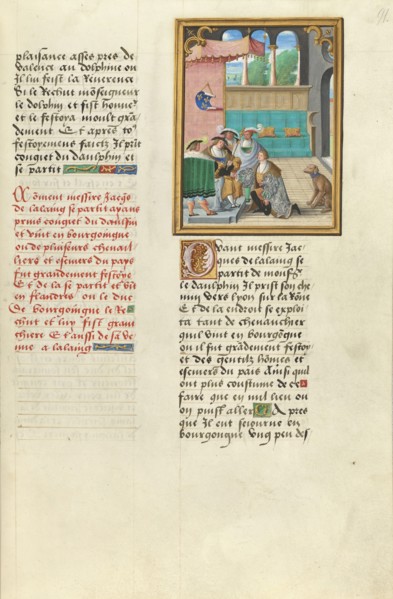 91.
plaisance asses pres de
valence au dolphine ou
Il luy feist la Reuerence
Et le Rechut mōseigneur
le dolphin et fist honneͬ
et le festoya moult gra
dement Et apres toͬ
festoyemens faictz Il prīt
conget du daulphin et
se partit
Coment messire Jacqͤs
de lalaing se partit ayans
prins conget du daulphin
et vint en bourgoingne
ou de pluiseurs cheuail
hers et escuiers du pays
fut grandement festoye
Et de la se partit et vīt
en flandres, ou le duc
de bourgoingne le Re
chut et luy fist grant
chiere Et aussi de sa ve
nue a lalaing
Quant messire Jac
ques de lalaing se
partit de monsͬ
le daulphin Il prist son che
min vers lyon sur la Rōne
Et de la endroit se exploi
ta tant de cheuaucher
quil vint en bourgōgne
ou il fut grādement festoy
et des gentilz hōmes et
escuiers du pais Ainsi quil
ont plus coustume de ce
faire que en nul lieu ou
on puist aller Apres
que Il eut seiourne en
bourgongne vng peu des